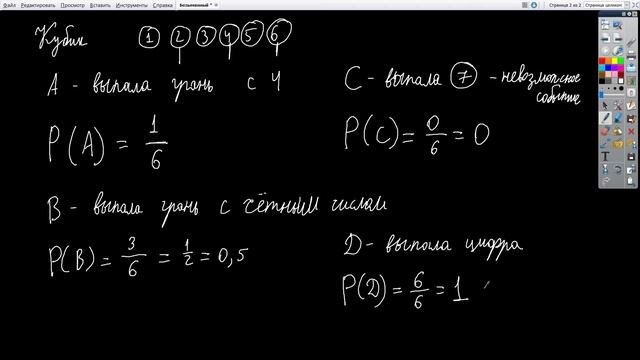 Безымянный *
Страница 2 из 2
Страница целиком
Файл Редактировать Вид Вставить Инструменты Справка
Кубик 1 2 3 4 5 6
А - выпала грань с 4
P(A) = 1/6
В - выпала грань с чётным числом
P(B) = 3/6 = 1/2 = 0,5
С - выпала 7 - невозможное
событие
P(C) = 0/6 = 0
Д - выпала цифра
P(Д) = 6/6 = 1